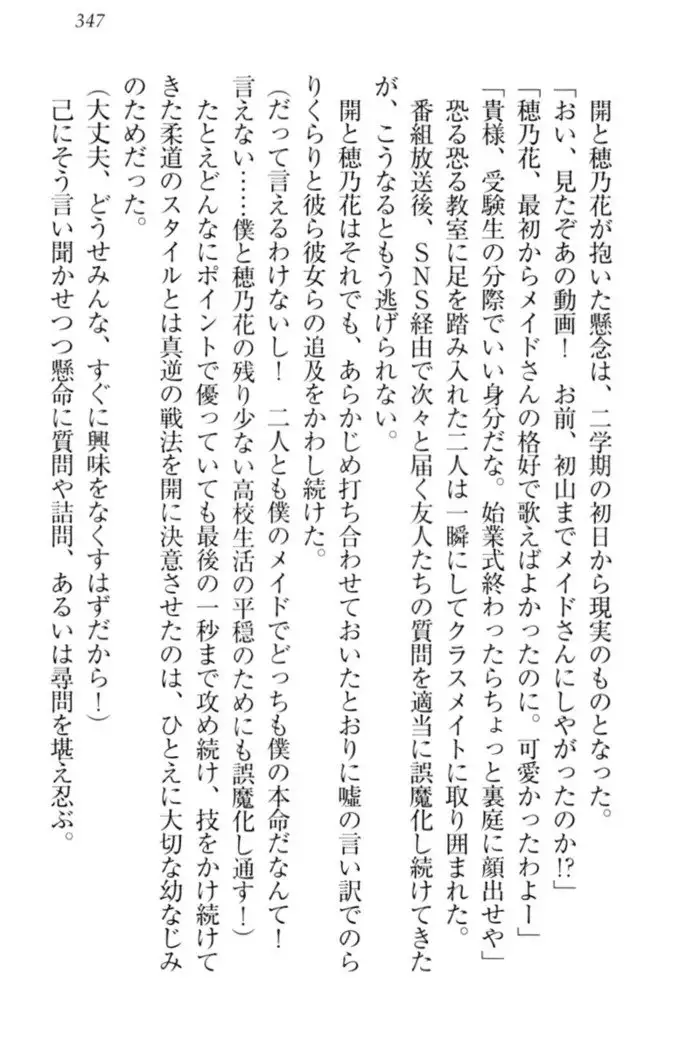 347
開と穂乃花が抱いた懸念は、二学期の初日から現実のものとなった。
「おい、見たぞあの動画！　お前、初山までメイドさんにしやがったのか!?」
「穂乃花、最初からメイドさんの格好で歌えばよかったのに。可愛かったわよー」
「貴様、受験生の分際でいい身分だな。始業式終わったらちょっと裏庭に顔出せや」
恐る恐る教室に足を踏み入れた二人は一瞬にしてクラスメイトに取り囲まれた。
番組放送後、ＳＮＳ経由で次々と届く友人たちの質問を適当に誤魔化し続けてきた
が、こうなるともう逃げられない。
開と穂乃花はそれでも、あらかじめ打ち合わせておいたとおりに嘘の言い訳でのら
りくらりと彼ら彼女らの追及をかわし続けた。
（だって言えるわけないし！　二人とも僕のメイドでどっちも僕の本命だなんて！
言えない……僕と穂乃花の残り少ない高校生活の平穏のためにも誤魔化し通す！）
たとえどんなにポイントで優っていても最後の一秒まで攻め続け、技をかけ続けて
きた柔道のスタイルとは真逆の戦法を開に決意させたのは、ひとえに大切な幼なじみ
のためだった。
（大丈夫、どうせみんな、すぐに興味をなくすはずだから！）
己にそう言い聞かせつつ懸命に質問や詰問、あるいは尋問を堪え忍ぶ。